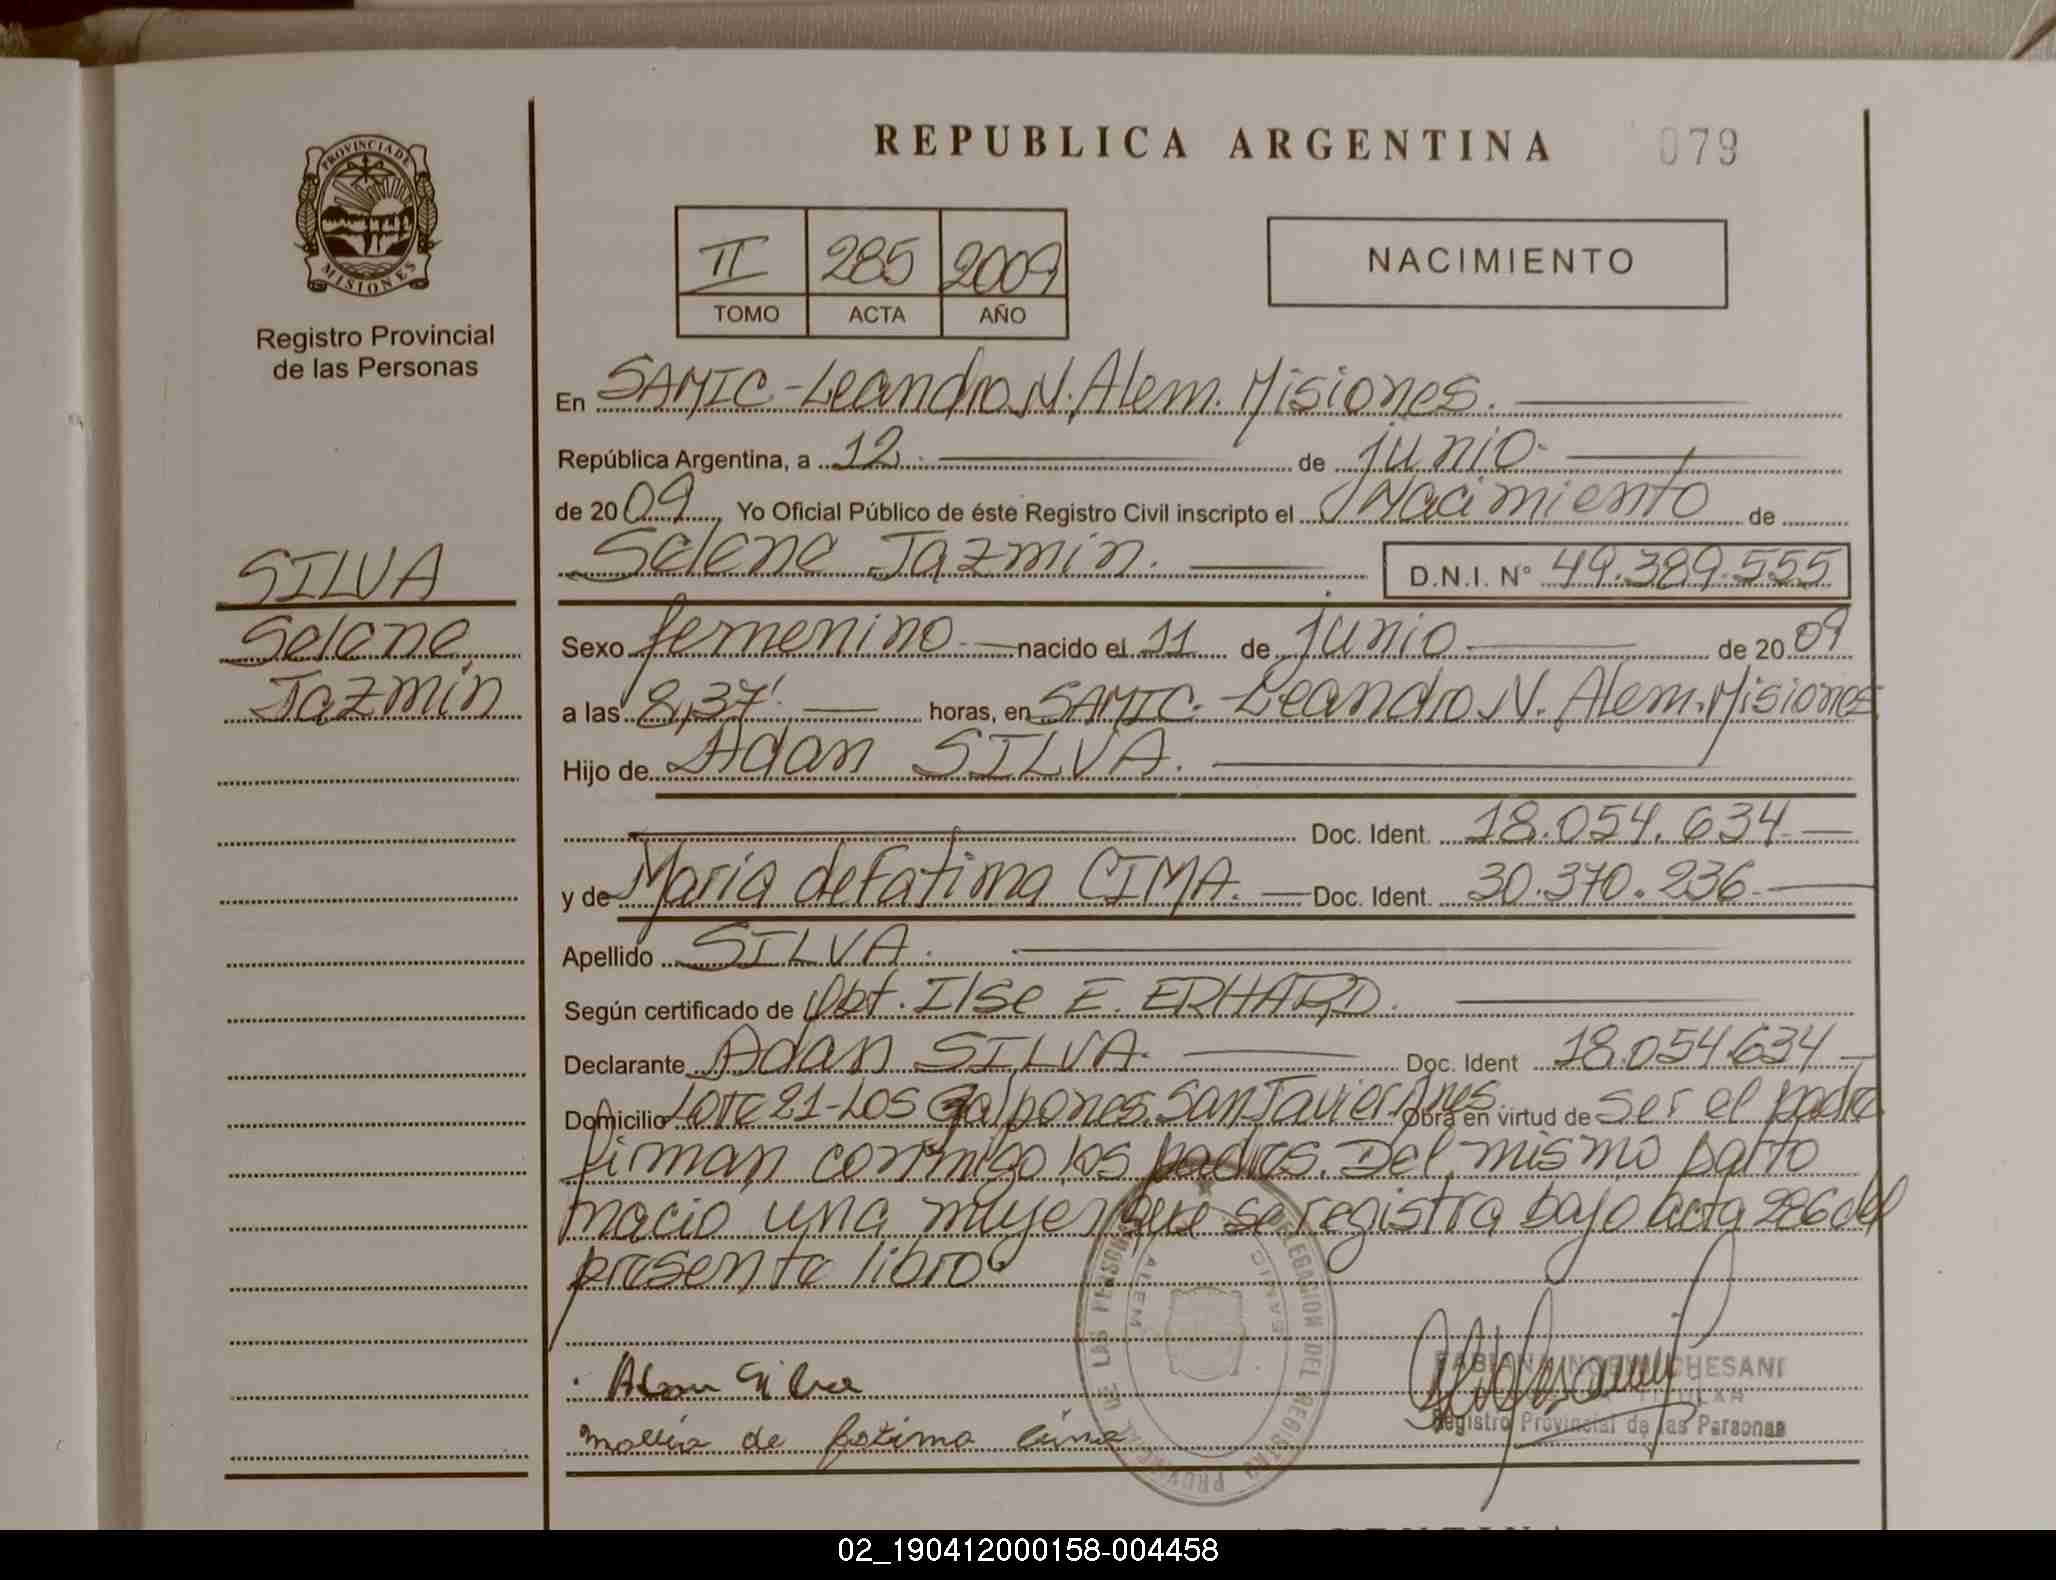 REPUBLICA ARGENTINA 079
PROVINCIA DE
MISIONES
Registro Provincial
de las Personas
II 285 2009
TOMO ACTA AÑO
NACIMIENTO
En SAMIC-Leandro N. Alem. Misiones.
República Argentina, a 12 de junio
de 2009 Yo Oficial Público de éste Registro Civil inscripto el Nacimiento de
Selene Jazmín. D.N.I. N° 49.389.555
SILVA
Selene
Jazmín
Sexo femenino nacido el 11 de junio de 2009
a las 8,37' horas, en SAMIC-Leandro N. Alem. Misiones
Hijo de Adan SILVA.
Doc. Ident. 18.054.634
y de María de Fatima CIMA. Doc. Ident. 30.370.236
Apellido SILVA.
Según certificado de Obt. Ilse E. ERHARD.
Declarante Adan SILVA. Doc. Ident 18.054.634
Domicilio Lote 21-Los Galpones. San Javier Mnes. Obra en virtud de ser el padre
firman conmigo los padres. Del mismo parto
nacio una mujer que se registra bajo acta 286 del
presente libro
DELEGACION DEL REGISTRO PROVINCIAL DE LAS PERSONAS
ALEM
Adan Silva
maria de fatima cima
Registro Provincial de las Personas
02_190412000158-004458